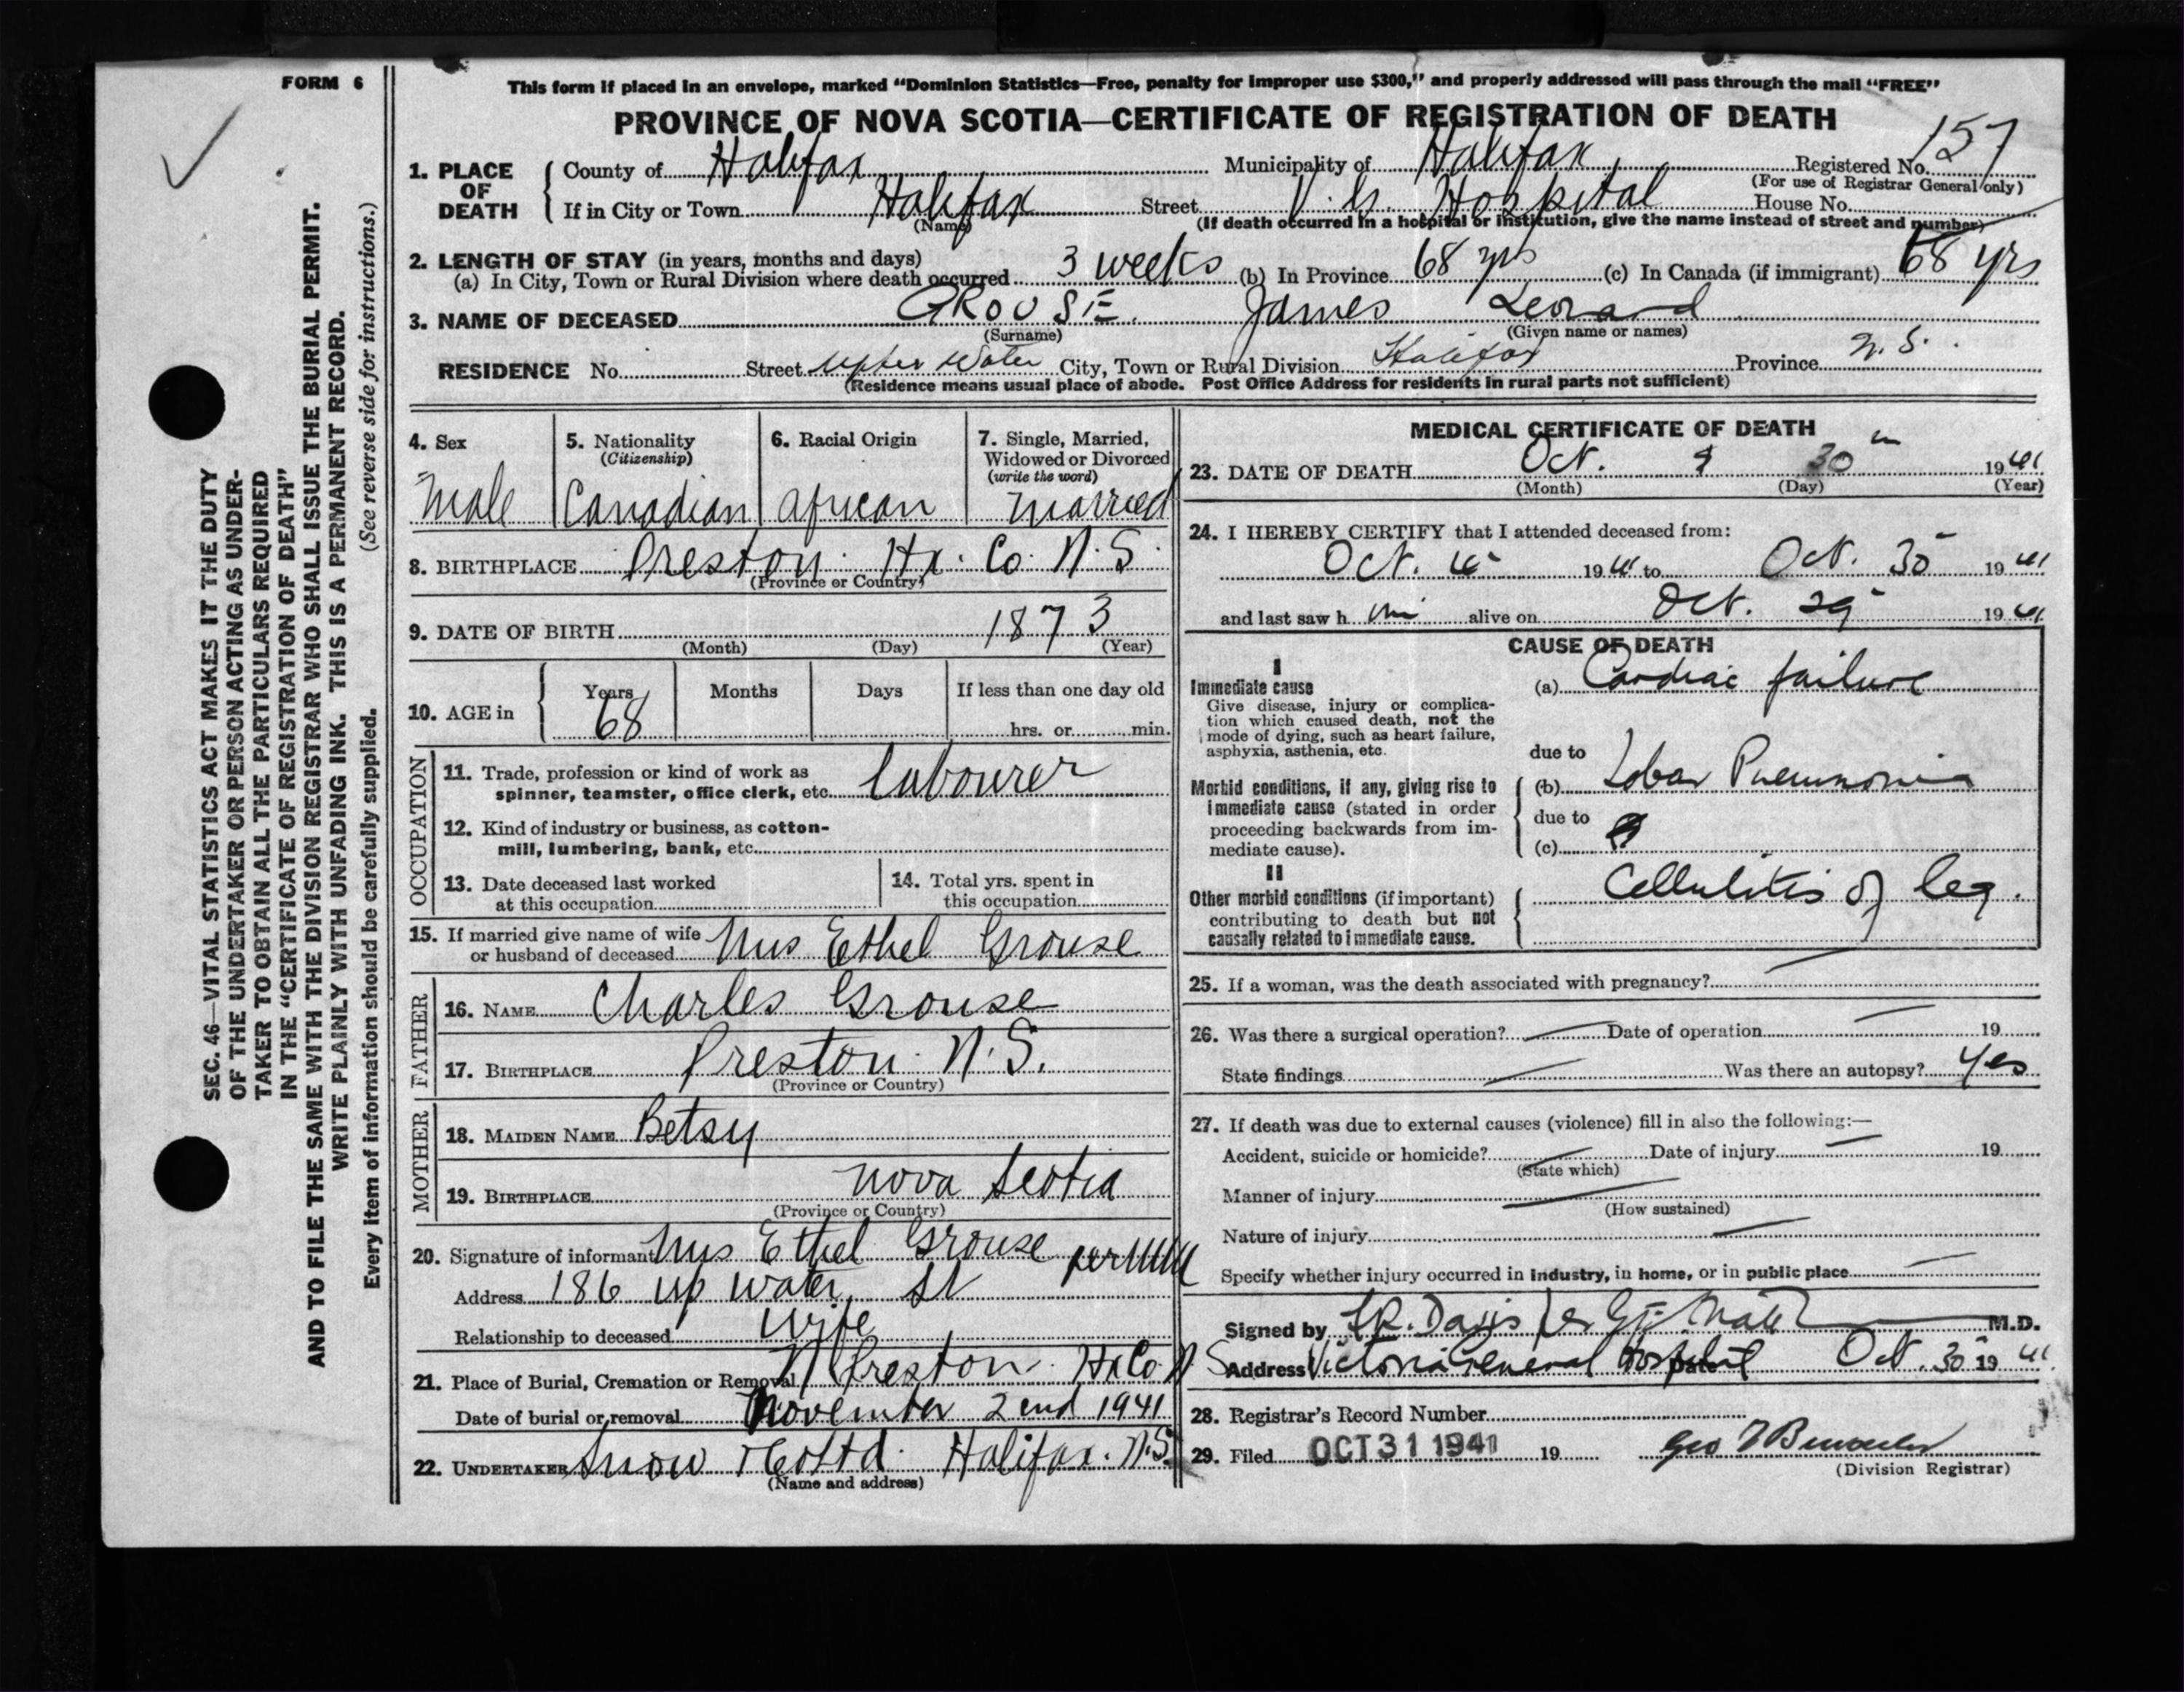 FORM 6
This form if placed in an envelope, marked “Dominion Statistics—Free, penalty for improper use $300,” and properly addressed will pass through the mail “FREE”
PROVINCE OF NOVA SCOTIA—CERTIFICATE OF REGISTRATION OF DEATH
157
1. PLACE OF DEATH
County of Halifax Municipality of Halifax Registered No.
(For use of Registrar General only)
If in City or Town Halifax Street V. G. Hospital House No.
(Name) (If death occurred in a hospital or institution, give the name instead of street and number)
2. LENGTH OF STAY (in years, months and days)
(a) In City, Town or Rural Division where death occurred 3 weeks (b) In Province 68 yrs (c) In Canada (if immigrant) 68 yrs
3. NAME OF DECEASED GROUSE James Leonard
(Surname) (Given name or names)
RESIDENCE No. Street Upper Water City, Town or Rural Division Halifax Province N.S.
(Residence means usual place of abode. Post Office Address for residents in rural parts not sufficient)
4. Sex
Male
5. Nationality
(Citizenship)
Canadian
6. Racial Origin
African
7. Single, Married,
Widowed or Divorced
(write the word)
Married
8. BIRTHPLACE Preston Hx. Co. N.S.
(Province or Country)
9. DATE OF BIRTH 1873
(Month) (Day) (Year)
10. AGE in
Years Months Days If less than one day old
68 hrs. or min.
OCCUPATION
11. Trade, profession or kind of work as
spinner, teamster, office clerk, etc. labourer
12. Kind of industry or business, as cotton-
mill, lumbering, bank, etc.
13. Date deceased last worked
at this occupation
14. Total yrs. spent in
this occupation
15. If married give name of wife
or husband of deceased Mrs Ethel Grouse
FATHER
16. NAME Charles Grouse
17. BIRTHPLACE Preston N.S.
(Province or Country)
MOTHER
18. MAIDEN NAME Betsy
19. BIRTHPLACE Nova Scotia
(Province or Country)
20. Signature of informant Mrs Ethel Grouse per
Address 186 Up Water St
Relationship to deceased Wife
21. Place of Burial, Cremation or Removal N Preston Hx Co N S
Date of burial or removal November 2nd 1941
22. UNDERTAKER Snow & Co Ltd. Halifax. N.S.
(Name and address)
MEDICAL CERTIFICATE OF DEATH
23. DATE OF DEATH Oct. 30 1941
(Month) (Day) (Year)
24. I HEREBY CERTIFY that I attended deceased from:
Oct. 1941 to Oct. 30 1941
and last saw h im alive on Oct. 29 1941
CAUSE OF DEATH
I
Immediate cause
Give disease, injury or complica-
tion which caused death, not the
mode of dying, such as heart failure,
asphyxia, asthenia, etc.
(a) Cardiac failure
due to
Morbid conditions, if any, giving rise to
immediate cause (stated in order
proceeding backwards from im-
mediate cause).
(b) Lobar Pneumonia
due to
(c)
II
Other morbid conditions (if important)
contributing to death but not
causally related to immediate cause.
Cellulitis of leg.
25. If a woman, was the death associated with pregnancy?
26. Was there a surgical operation? Date of operation 19
State findings Was there an autopsy? Yes
27. If death was due to external causes (violence) fill in also the following:—
Accident, suicide or homicide? Date of injury 19
(State which)
Manner of injury
(How sustained)
Nature of injury
Specify whether injury occurred in industry, in home, or in public place
Signed by Davis M.D.
Address Victoria General Hospital Date Oct. 30 1941
28. Registrar's Record Number
29. Filed OCT 31 1941 19 Geo
(Division Registrar)
SEC. 46—VITAL STATISTICS ACT MAKES IT THE DUTY
OF THE UNDERTAKER OR PERSON ACTING AS UNDER-
TAKER TO OBTAIN ALL THE PARTICULARS REQUIRED
IN THE “CERTIFICATE OF REGISTRATION OF DEATH”
AND TO FILE THE SAME WITH THE DIVISION REGISTRAR WHO SHALL ISSUE THE BURIAL PERMIT.
WRITE PLAINLY WITH UNFADING INK. THIS IS A PERMANENT RECORD.
Every item of information should be carefully supplied. (See reverse side for instructions.)